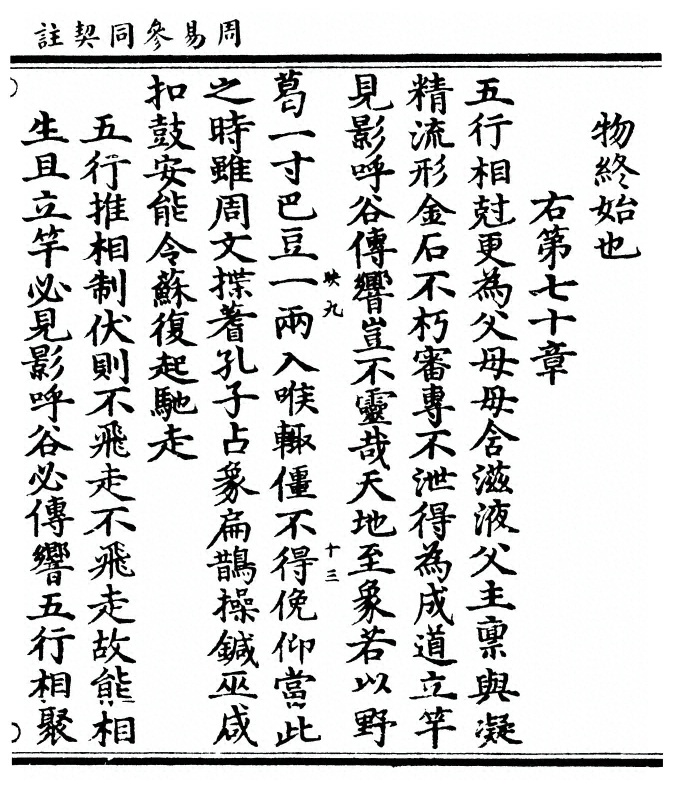 周易參同契註
物終始也
右第七十章
五行相尅更為父母母含滋液父主稟與凝
精流形金石不朽審專不泄得為成道立竿
見影呼谷傳響豈不靈哉天地至象若以野
映九
十三
葛一寸巴豆一兩入喉輒僵不得俛仰當此
之時雖周文揲蓍孔子占象扁鵲操鍼巫咸
扣鼓安能令蘇復起馳走
五行推相制伏則不飛走不飛走故能相
生且立竿必見影呼谷必傳響五行相聚